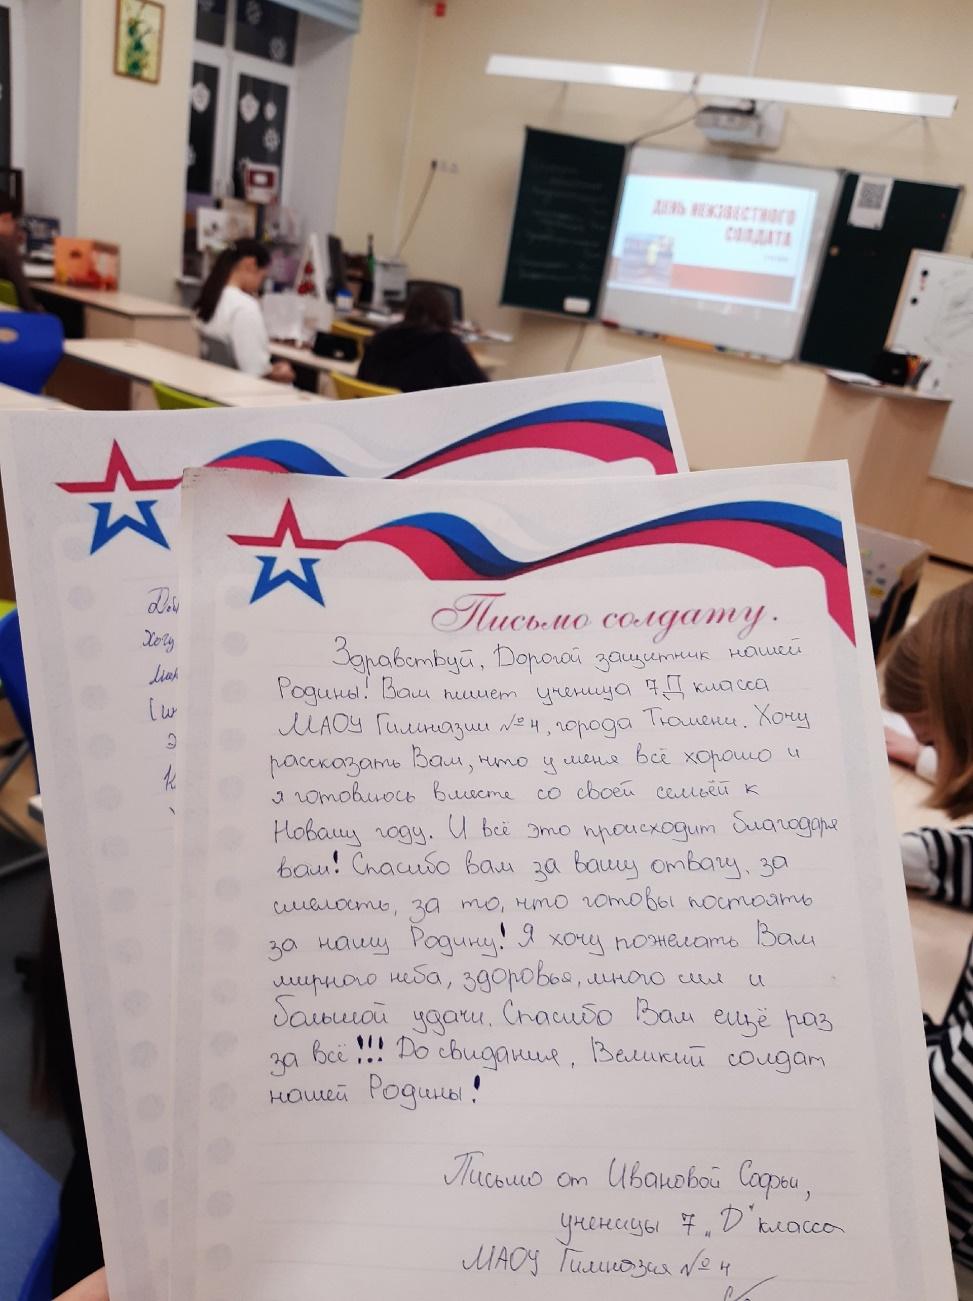 ДЕНЬ НЕИЗВЕСТНОГО
СОЛДАТА
Письмо солдату.
Здравствуй, Дорогой защитник нашей
Родины! Вам пишет ученица 7Д класса
МАОУ Гимназии №4, города Тюмени. Хочу
рассказать Вам, что у меня всё хорошо и
я готовлюсь вместе со своей семьёй к
Новому году. И всё это происходит благодаря
вам! Спасибо вам за вашу отвагу, за
смелость, за то, что готовы постоять
за нашу Родину! Я хочу пожелать Вам
мирного неба, здоровья, много сил и
большой удачи. Спасибо Вам ещё раз
за всё!!! До свидания, Великий солдат
нашей Родины!
Письмо от Ивановой Софьи,
ученицы 7 „Д" класса
МАОУ Гимназия №4
Хочу